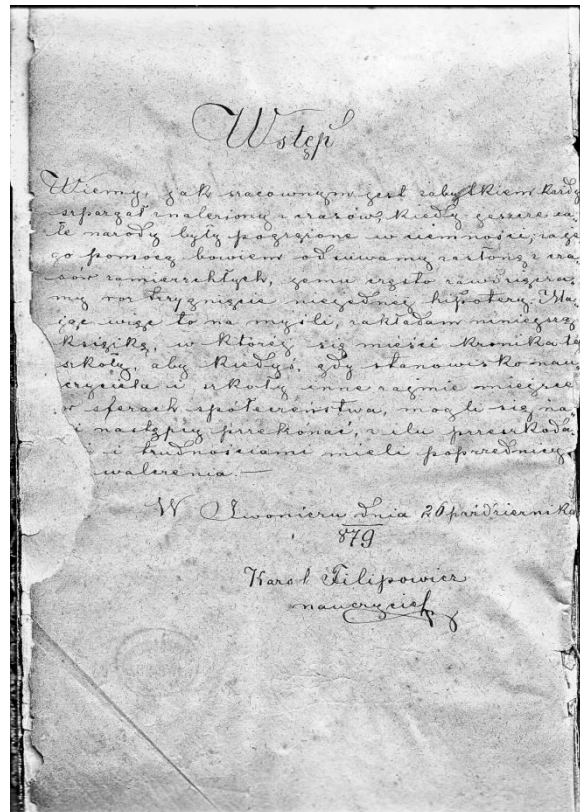 Wstęp
Wiemy, jak szacownym jest zabytkiem każdy
szpargał znaleziony z czasów, kiedy jeszcze ca-
łe narody były pogrążone w ciemności; za je-
go pomocą bowiem odsuwamy zasłonę z cza-
sów zamierzchłych, jemu często zawdzięcza-
my rozstrzygnięcie niejednej hipotezy. Ma-
jąc więc to na myśli, zakładam niniejszą
książkę, w której się mieści kronika tej
szkoły, aby kiedyś, gdy stanowisko nau-
czyciela i szkoły inne zajmie miejsce
w sferach społeczeństwa, mogli się na-
i następcy przekonać, z ilu przeszkoda-
i trudnościami mieli poprzednicy
walczenia.—
W Iwoniczu dnia 26 października
879
Karol Filipowicz
nauczyciel